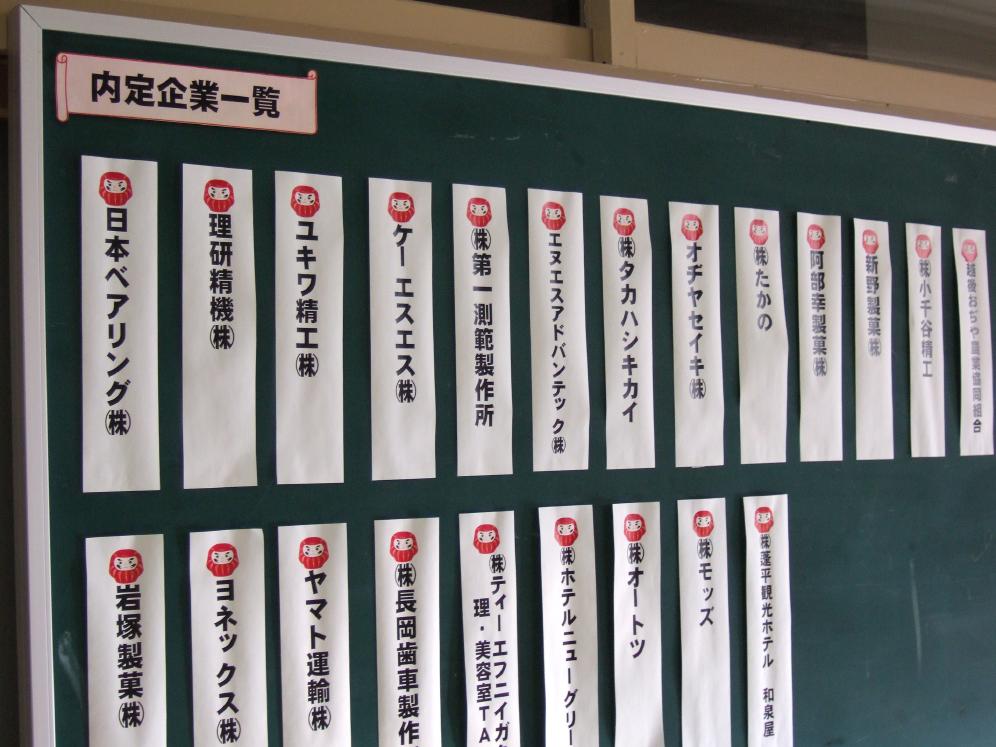 内定企業一覧
日本ベアリング㈱
理研精機㈱
ユキワ精工㈱
ケーエスエス㈱
㈱第一測範製作所
エヌエスアドバンテック㈱
㈱タカハシキカイ
オヂヤセイキ㈱
㈱たかの
阿部幸製菓㈱
新野製菓㈱
㈱小千谷精工
越後おぢや農業協同組合
岩塚製菓㈱
ヨネックス㈱
ヤマト運輸㈱
㈱長岡歯車製作
㈱ティーエフニイガタ
理・美容室TA
㈱ホテルニューグリー
㈱オートツ
㈱モッズ
㈱蓬平観光ホテル 和泉屋